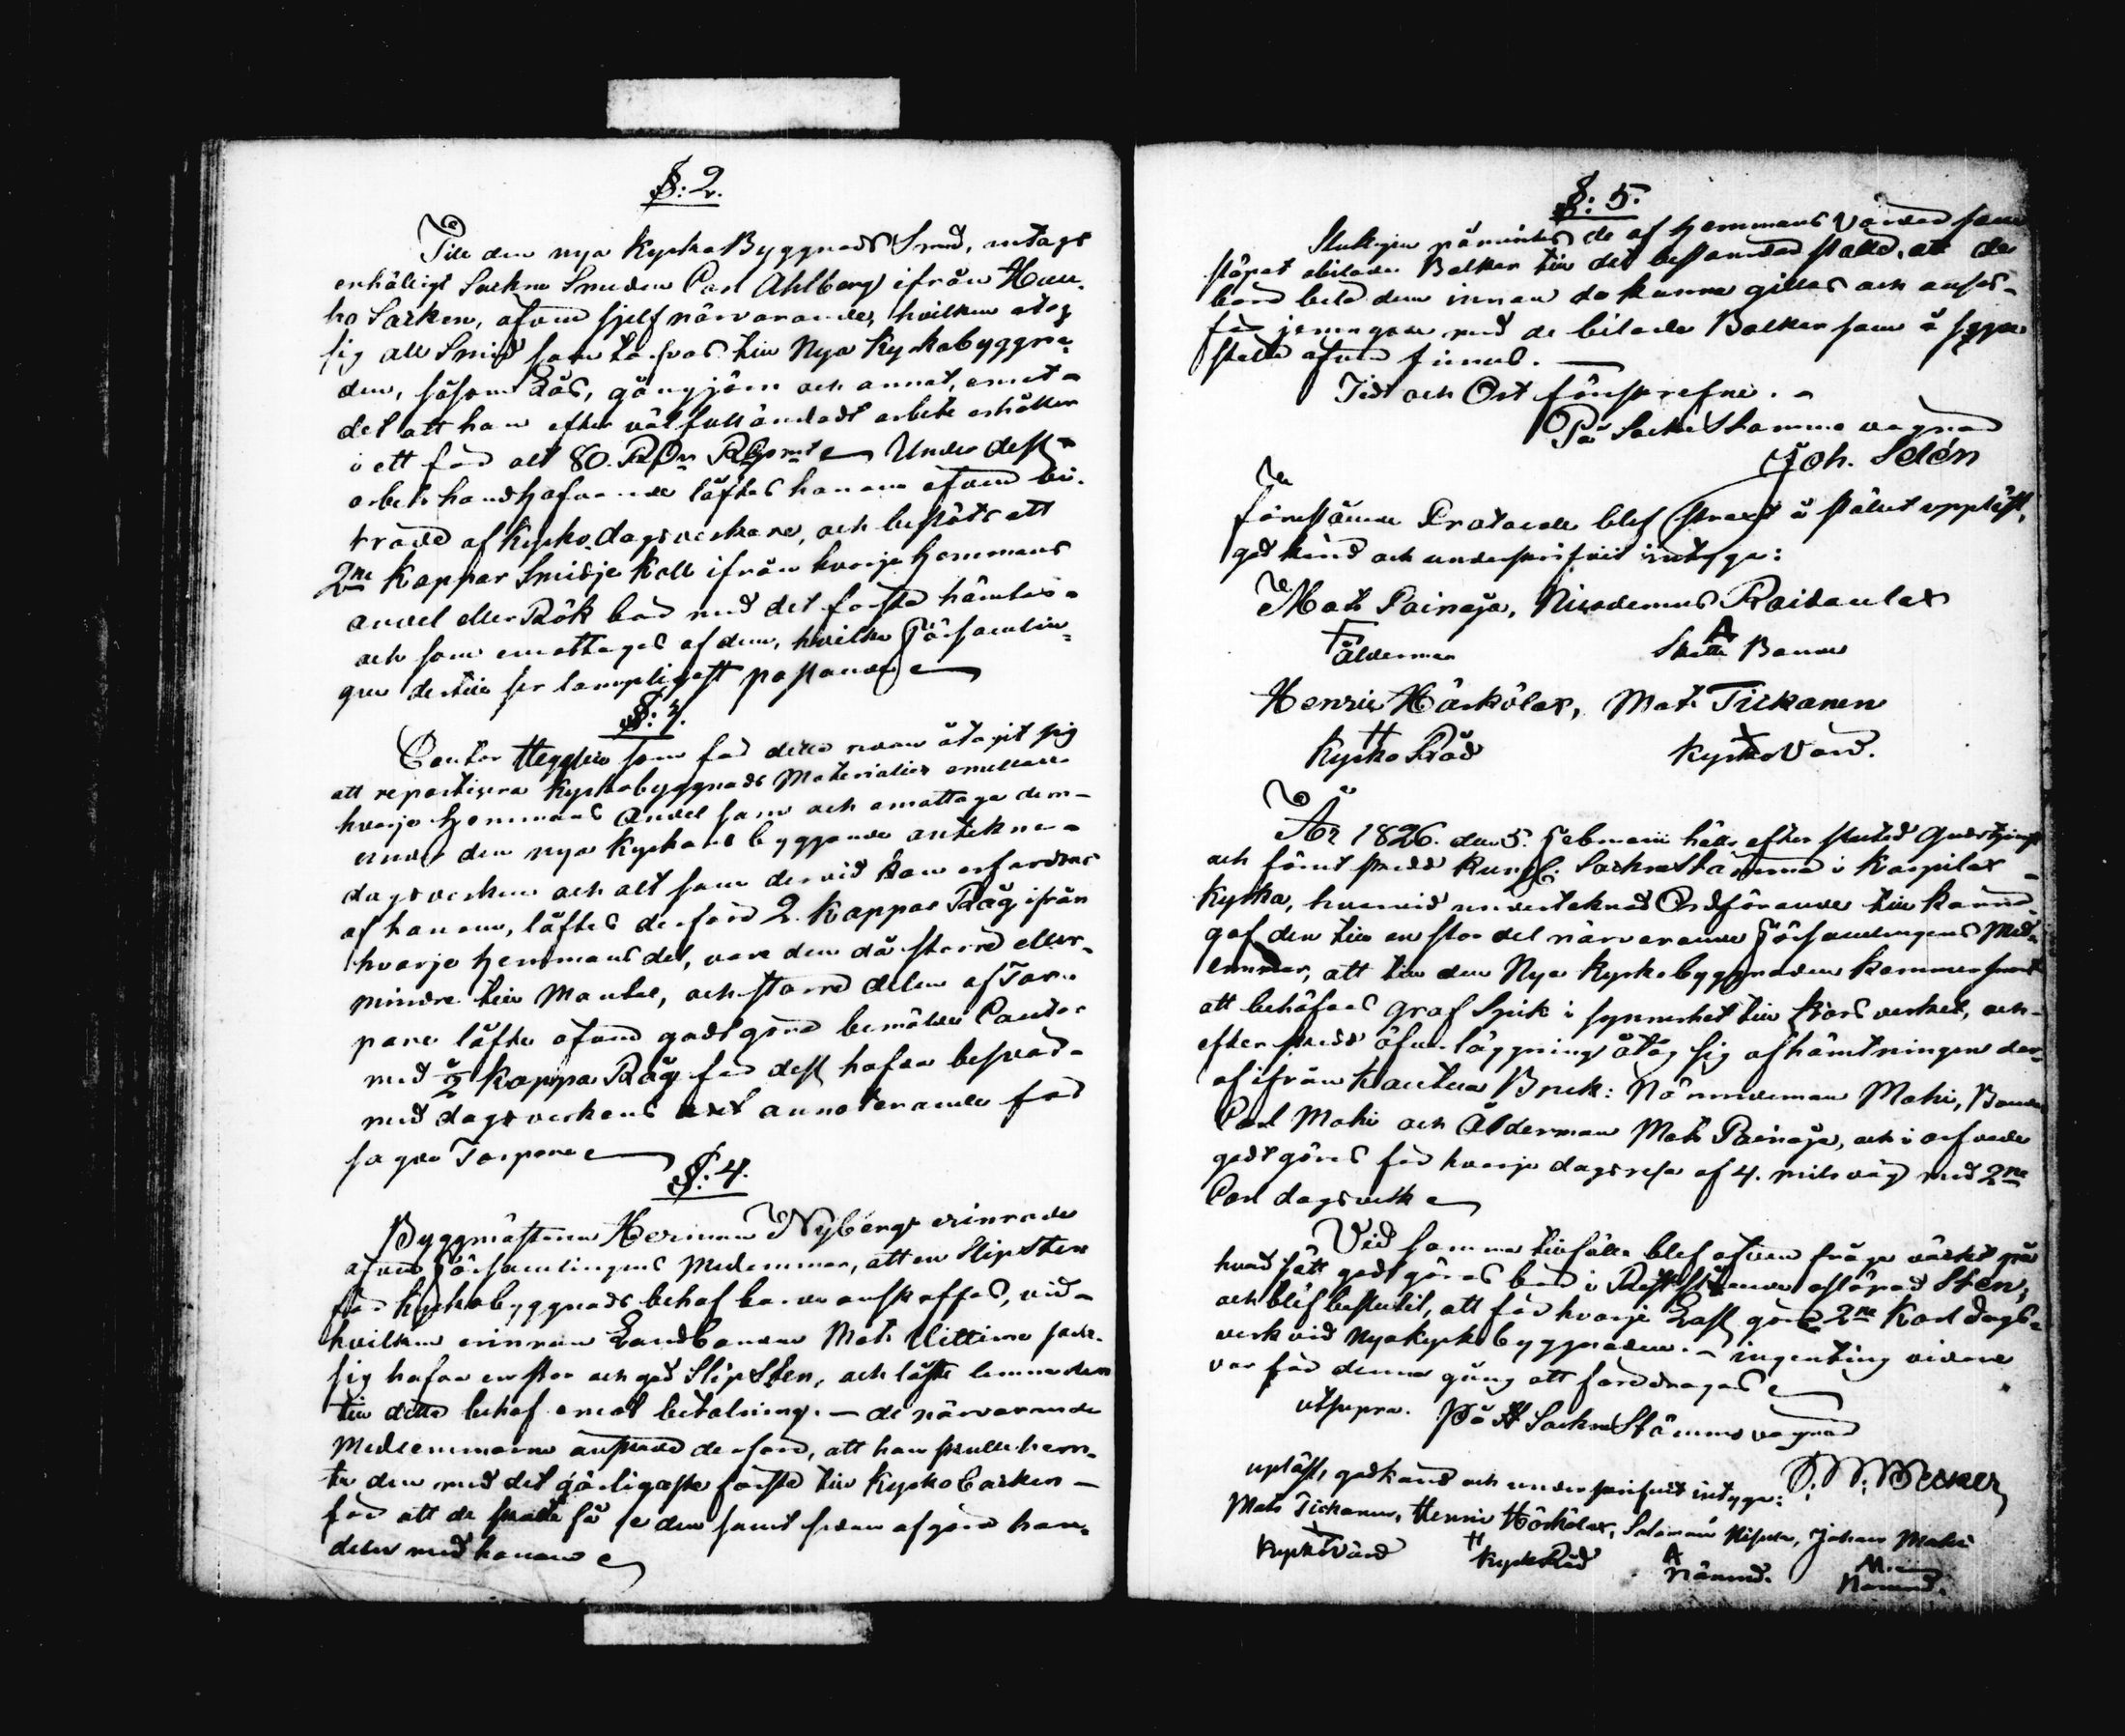 §: 2.
Till den nya Kyrko Byggnads Smed, antogs
enhälligt Sockne Smeden Carl Ahlberg ifrån Hau-
ho Socken, äfven sjelf närvarande, hvilken åtog
sig allt Smide som tarfvas till Nya Kyrkobyggna-
den, såsom Lås, gångjärn och annat, emot
det att han efter väl fulländadt arbete erhåller
i ett för alt 80. Under dess
arbets handhafvande löftes honom äfven bi-
träde af Kyrko dagsverkare, och beslöts att
2ne Kappar Smidje Kåll ifrån hvarje Hemmans
andel eller Rök bör med det första hämtas
och som emottages af dem, hvilka Församlin-
gen dertill ser lämpligast passande
§: 3.
Cantor som för detta redan åtagit sig
att repartisera Kyrkobyggnads Materialier emellan
hvarje Hemmans Andel som och emottaga dem
under den nya Kyrkans byggande antekna
dagsverken och alt som dervid kan erfordras
af honom, löftes derföre 2. Kappar Råg ifrån
hvarje Hemmans del, vare den då större eller
mindre till Mantal, och större delen af Tor-
pare löfte äfven godtgöra bemälde Cantor
med ½ Kappa Råg för dess hafda besvär
med dagsverkens annoterande för
sagde Torpare
§: 4.
Byggmästaren Herman Nyberg erinrade
äfven Församlingens Medlemmar, att en Slip Sten
för Kyrkobyggnads behof borde anskaffas, vid
hvilken erinran Landbonden Mats Uittimo sade
sig hafva en stor och god Slip Sten, och löfte lemna den
till detta behof emot betalning. - de närvarande
Medlemmarne önskade derföre, att han skulle hem-
ta den med det görligaste första till Kyrko backen
för att de skulle få se den samt sedan afgöra han-
deln med honom
§: 5.
Slutligen påmintes de af Hemmans Värdar som
släpat obilade Balkar till det bestämda stället, att de
böra bila dem innan de kunna gillas och anses
för jemngoda med de bilade Balkar som å samma
ställe äfven finnas.
Tid och Ort förskrefne.
På Sockne Stämmo vägnar
Joh. Selén
Föreståenne Protocoll blef straxt å stället uppläst,
godkänd och underskrifvit intyga:
Mats Painaja, Nicodemus Raidanlax
Ålderman Skatte Bonde
Henric Härkälax, Mats Tickanen
Kyrko Råd Kyrko Värd.
År 1826. den 5. Februarii hölls efter slutad Gudstjenst
och förut skedd Kungl. Sockne Stämma i Karpilax
Kyrka, hvarvid undertecknad Ordförande till känna
gaf den till en stor del närvarande Församlingens Med-
lemmar, att till den Nya Kyrkobyggnaden kommer
att behöfvas graf Spik i synnerhet till kors verket, och
efter skedd öfver läggning åtog sig afhämtningen der-
af ifrån Kauttua Bruk: Nämndeman Mahi, Bonden
Carl Mahi och Ålderman Mats Painaja, och i arfvode
godtgöres för hvarje dagsresa af 4. mils väg med 2ne
Carl dagsverk
Vid samma tillfälle blef äfven fråga väckt på
hvad sätt godtgöras bör i Rest stående osläpad Sten;
och blef beslutit, att för hvarje Lass göra 2ne Karl dags-
verk vid Nya Kyrkobyggnaden. - ingenting vidare
var för denna gång att föredragas
utsupra. På Sockne Stämmo vägnar
upläst, godkänd och underskrifvit intyga: Becker
Mats Tickanen, Henric Härkälax, Salomon, Johan Mahi
Kyrko Värd Kyrko Råd Nämnd. Nämnd.